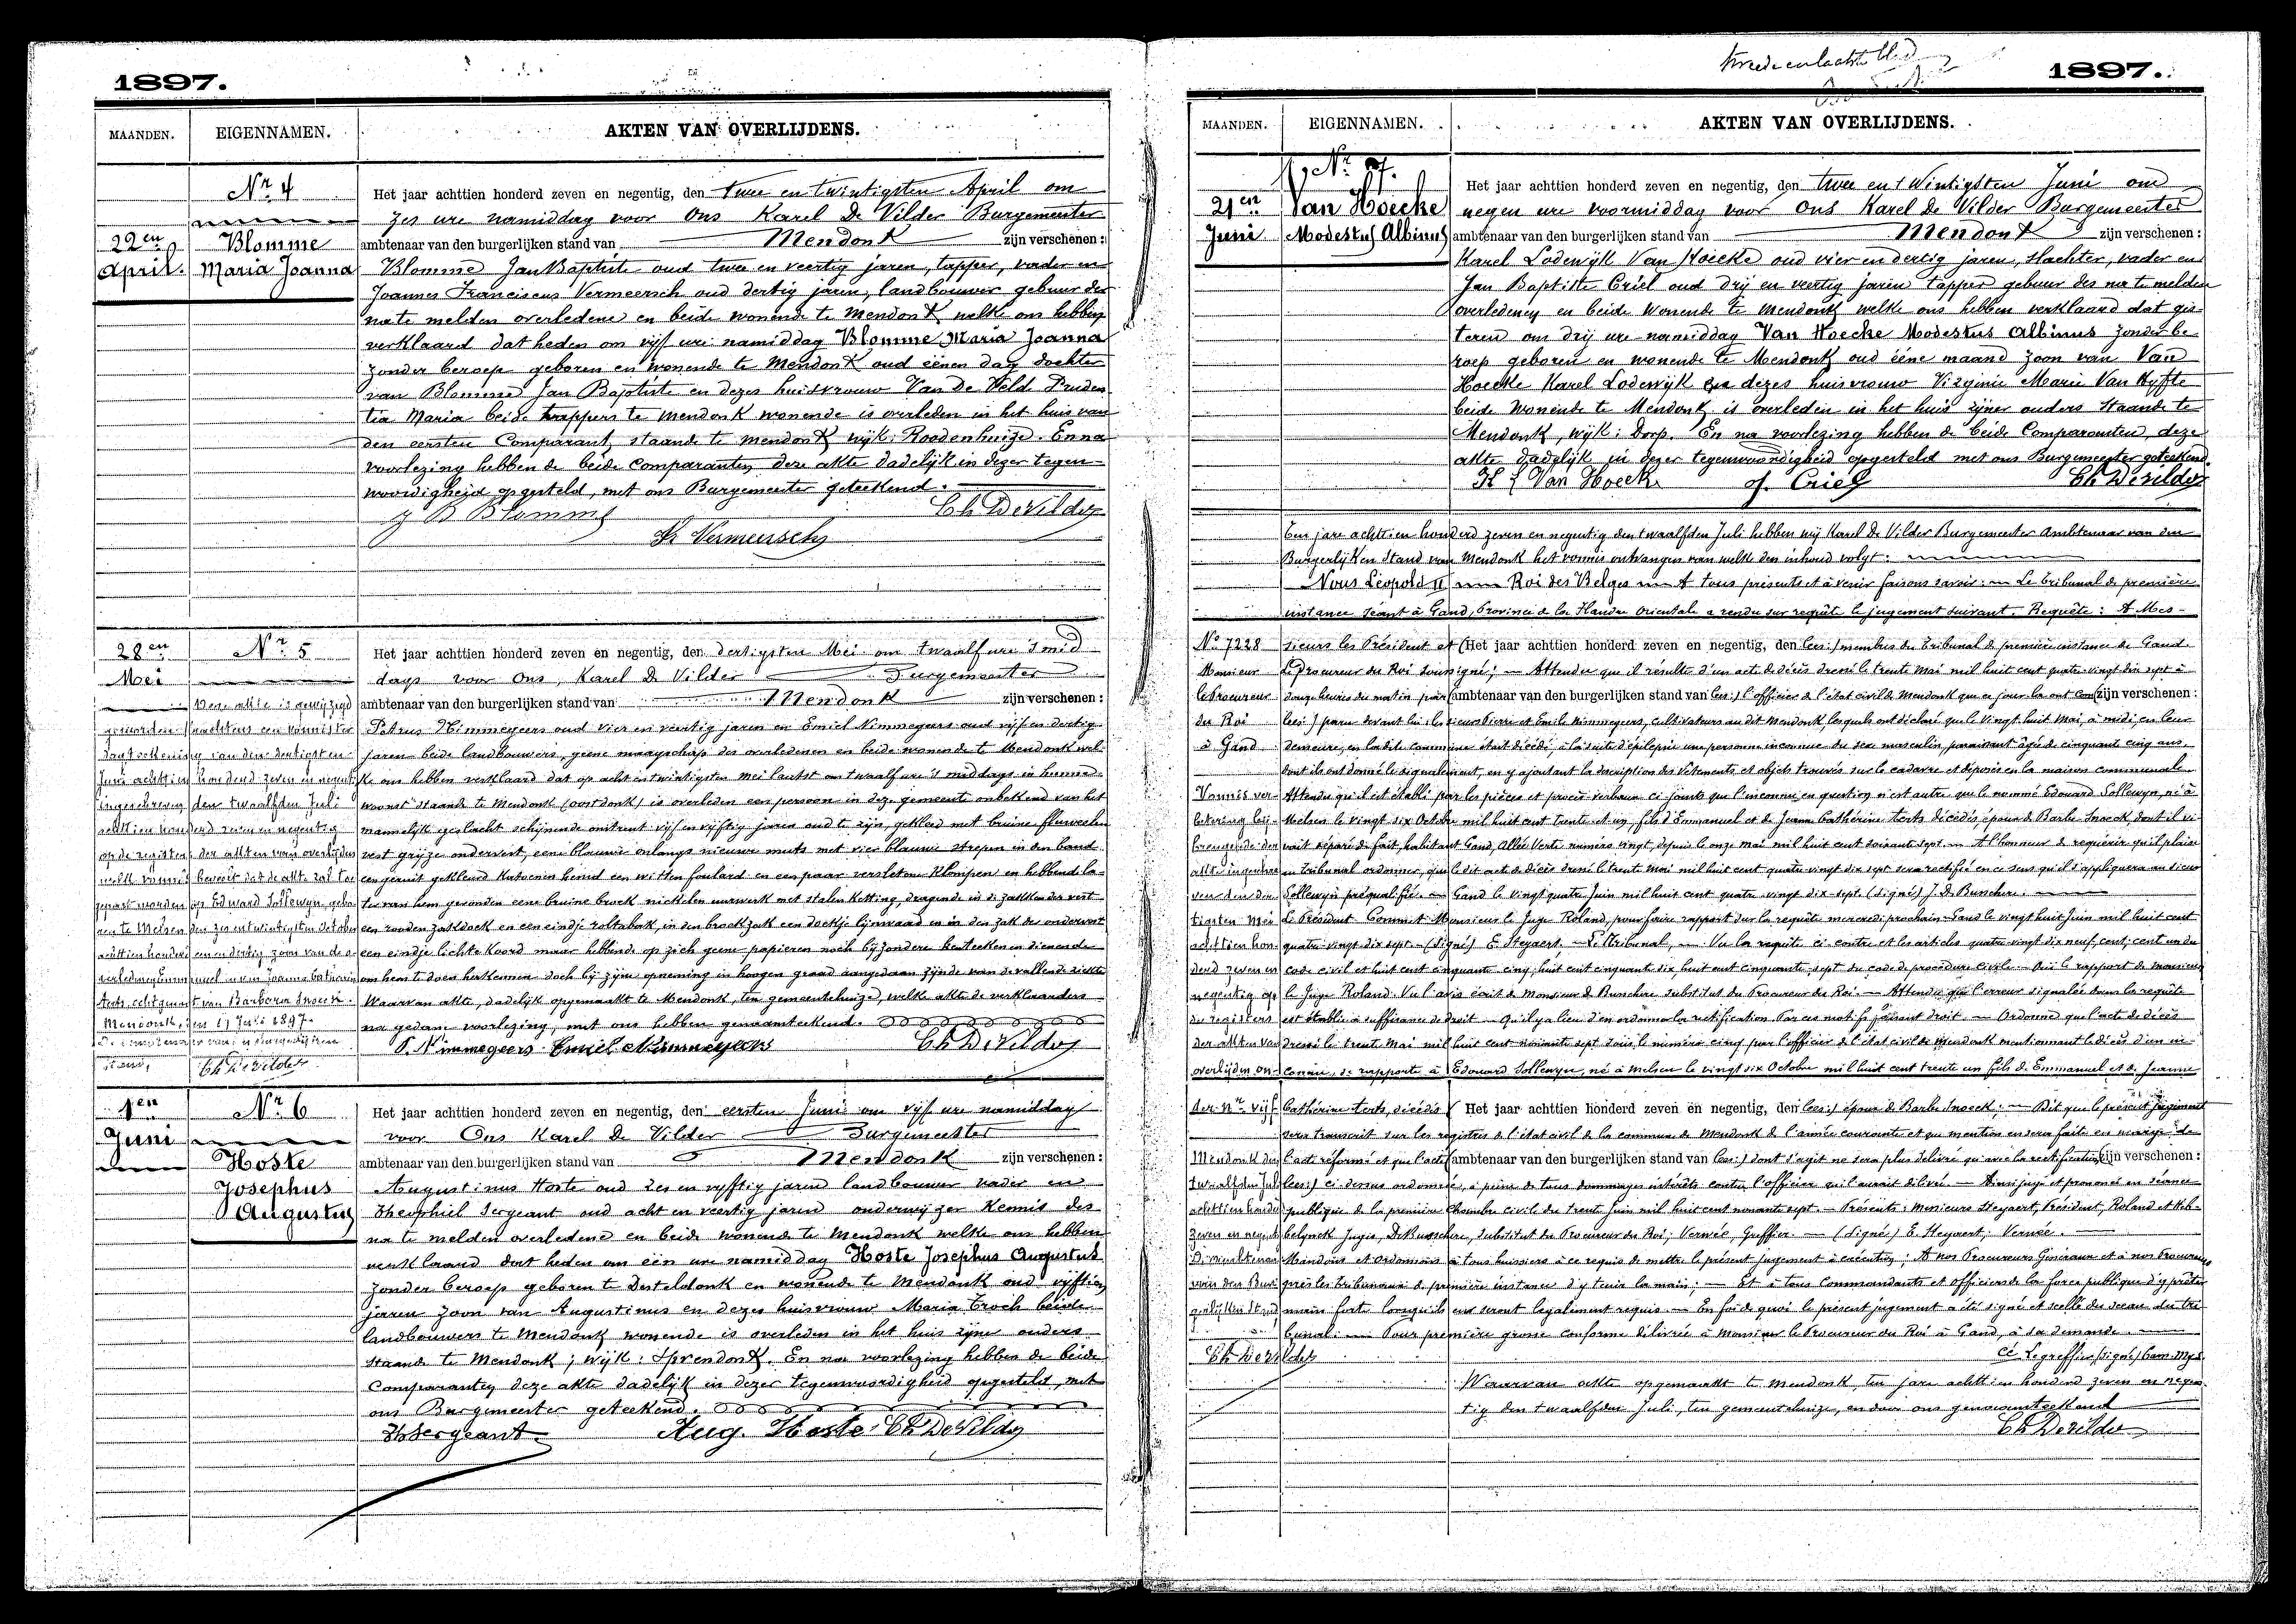 1897.
MAANDEN.
EIGENNAMEN.
AKTEN VAN OVERLIJDENS.
Nr 4
22en
April.
Blomme
Maria Joanna
Het jaar achttien honderd zeven en negentig, den twee en twintigsten April om
zes ure namiddag voor Ons Karel De Vilder Burgemeester
ambtenaar van den burgerlijken stand van Mendonk zijn verschenen:
Blomme Jan Baptiste oud twee en veertig jaren, tapper, vader en
Joannes Franciscus Vermeersch oud dertig jaren, landbouwer gebuur der
na te melden overledene en beide wonende te Mendonk welke ons hebben
verklaard dat heden om vijf ure namiddag Blomme Maria Joanna
zonder beroep geboren en wonende te Mendonk oud eenen dag dochter
van Blomme Jan Baptiste en dezes huisvrouw Van De Veld Pruden
tia Maria beide tappers te Mendonk wonende is overleden in het huis van
den eersten Comparant, staande te Mendonk wijk: Roodenhuize. En na
voorlezing hebben de beide comparanten deze akte dadelijk in dezer tegen-
woordigheid opgesteld, met ons Burgemeester geteekend.
J B Blomme
Ch De Vilder
Vermeersch
28en
Mei
Nr 5
Het jaar achttien honderd zeven en negentig, den dertigsten Mei om twaalf ure 's mid
dags voor Ons, Karel De Vilder Burgemeester
ambtenaar van den burgerlijken stand van Mendonk zijn verschenen:
Petrus Nimmegeers oud vier en veertig jaren en Emiel Nimmegeers oud vijf en dertig
jaren beide landbouwers, geene maagschap des overledenen en beide wonende te Mendonk wel-
ke ons hebben verklaard dat op acht en twintigsten Mei laatst om twaalf ure 's middags in hunne
woonst staande te Mendonk (oostdonk) is overleden een persoon in deze gemeente onbekend van het
mannelijk geslacht schijnende omtrent vijf en vijftig jaren oud te zijn, gekleed met bruine fluweelen
vest grijze ondervest, eene blauwe onlangs nieuwe muts met vier blauwe strepen in den band
een geruit gekleurd katoenen hemd een witten foulard en een paar versleten klompen en hebbende la-
ter van hem gevonden eene bruine broek nickelen uurwerk met stalen ketting, dragende in de zakken der vest
een rooden zakdoek en een eindje roltabak, in den broekzak een doekje lijnwaad en in den zak der ondervest
een eindje lichte koord maar hebbende op zich geene papieren noch bijzondere kenteekenen dienende
om hem te doen herkennen doch bij zijne opneming in hoogen graad aangedaan zijnde van de vallende ziekte
Waarvan akte, dadelijk opgemaakt te Mendonk, ten gemeentehuize, welke akte de verklaarders
na gedane voorlezing, met ons hebben genaamteekend.
P. Nimmegeers Emiel Nimmegeers Ch De Vilder
Deze akte is gewijzigd
geworden
op de registers der akten van overlijden
Mendonk, den 17 Juli 1897.
Ch De Vilder
1en
Juni
Nr 6
Hoste
Josephus
Augustus
Het jaar achttien honderd zeven en negentig, den eersten Juni om vijf ure namiddag
voor Ons Karel De Vilder Burgemeester
ambtenaar van den burgerlijken stand van Mendonk zijn verschenen:
Augustinus Hoste oud zes en vijftig jaren landbouwer vader en
Theophiel Sergeant oud acht en veertig jaren onderwijzer Kennis des
na te melden overledene en beide wonende te Mendonk welke ons hebben
verklaard dat heden om een ure namiddag Hoste Josephus Augustus
zonder beroep geboren te Desteldonk en wonende te Mendonk oud vijftien
jaren zoon van Augustinus en dezes huisvrouw Maria Troch beide
landbouwers te Mendonk wonende is overleden in het huis zijner ouders
staande te Mendonk; wijk: Sprendonk. En na voorlezing hebben de beide
Comparanten deze akte dadelijk in dezer tegenwoordigheid opgesteld, met
ons Burgemeester geteekend.
Th Sergeant Aug. Hoste Ch De Vilder
1897.
MAANDEN.
EIGENNAMEN.
AKTEN VAN OVERLIJDENS.
Nr 7.
21en
Juni
Van Hoecke
Modestus Albinus
Het jaar achttien honderd zeven en negentig, den twee en twintigsten Juni om
negen ure voormiddag voor Ons Karel De Vilder Burgemeester
ambtenaar van den burgerlijken stand van Mendonk zijn verschenen:
Karel Lodewijk Van Hoecke oud vier en dertig jaren, slachter, vader en
Jan Baptiste Criel oud drij en veertig jaren tapper gebuur des na te melden
overledenen en beide wonende te Mendonk welke ons hebben verklaard dat gis-
teren om drij ure namiddag Van Hoecke Modestus Albinus zonder be-
roep geboren en wonende te Mendonk oud ééne maand zoon van Van
Hoecke Karel Lodewijk en dezes huisvrouw Virginie Marie Van Hyfte
beide wonende te Mendonk is overleden in het huis zijner ouders staande te
Mendonk, wijk: Dorp. En na voorlezing hebben de beide Comparanten, deze
akte dadelijk in dezer tegenwoordigheid opgesteld met ons Burgemeester geteekend.
K L Van Hoecke
J. Criel
Ch De Vilder
Ten jare achttien honderd zeven en negentig den twaalfden Juli hebben wij Karel De Vilder Burgemeester Ambtenaar van den
Burgerlijken Stand van Mendonk het vonnis ontvangen van welke den inhoud volgt:
Nous Léopold II Roi des Belges A tous présents et à venir faisons savoir: Le Tribunal de première
instance séant à Gand, Province de la Flandre Orientale a rendu sur requête le jugement suivant. Requête: A Mes-
No 7228
Monsieur
le Procureur
du Roi
à Gand
sieurs les Président et (Het jaar achttien honderd zeven en negentig, den (ces:) membres du Tribunal de première instance de Gand.
Le Procureur du Roi soussigné; Attendu que il résulte d'un acte de décès dressé le trente Mai mil huit cent quatre vingt dix sept à
douze heures du matin par (ambtenaar van den burgerlijken stand van (ces:) l'officier de l'état civil de Mendonk que ce jour là ont com (zijn verschenen:
(ces:) paru devant lui les sieurs Pierre et Emile Nimmegeers, cultivateurs au dit Mendonk, lesquels ont déclaré que le vingt huit Mai, à midi, en leur
demeure, en la dite commune était décédé, à la suite d'épilepsie une personne inconnue du sexe masculin, paraissant âgée de cinquante cinq ans,
dont ils ont donné le signalement, en y ajoutant la description des vêtements et objets trouvés sur le cadavre et déposés en la maison communale
Attendu qu'il est établi par les pièces et procès verbaux ci joints que l'inconnu en question n'est autre que le nommé Edouard Sollewyn, né à
Melsen le vingt six Octobre mil huit cent trente et un, fils d'Emmanuel et de Jeanne Cathérine Aerts décédés, époux de Barbe Snoeck, dont il vi-
vait séparé de fait, habitant Gand, Allée Verte numéro vingt, depuis le onze Mai mil huit cent soixante sept. A l'honneur de requérir qu'il plaise
au tribunal ordonner, que le dit acte de décès dressé le trente Mai mil huit cent quatre vingt dix sept sera rectifié en ce sens qu'il s'appliquera au sieur
Sollewyn préqualifié. Gand le vingt quatre Juin mil huit cent quatre vingt dix sept (signé) J. De Busschere.
Le Président Commet Monsieur le Juge Roland, pour faire rapport sur la requête mercredi prochain. Gand le vingt huit Juin mil huit cent
quatre vingt dix sept (signé) E Steyaert. Le tribunal, Vu la requête ci contre et les articles quatre vingt dix neuf, cent, cent un du
code civil et huit cent cinquante cinq, huit cent cinquante six huit cent cinquante sept du code de procédure civile Ouï le rapport de Monsieur
le Juge Roland. Vu l'avis écrit de Monsieur De Busschere substitut du Procureur du Roi. Attendu que l'erreur signalée dans la requête
est établie à suffisance de droit Qu'il y a lieu d'en ordonner la rectification. Par ces motifs faisant droit Ordonne que l'acte de décès
dressé le trente Mai mil huit cent nonante sept sous le numéro cinq par l'officier de l'état civil de Mendonk mentionnant le décès d'un in-
connu, se rapporte à Edouard Sollewyn, né à Melsen le vingt six Octobre mil huit cent trente un fils de Emmanuel et de Jeanne
Cathérine Aerts, décédés (Het jaar achttien honderd zeven en negentig, den (ces:) époux de Barbe Snoeck; Dit que le présent jugement
sera transcrit sur les registres de l'état civil de la commune de Mendonk de l'année courante et que mention en sera faite en marge de
l'acte réformé et que l'acte (ambtenaar van den burgerlijken stand van (ces:) dont s'agit ne sera plus délivré qu'avec la rectification (zijn verschenen:
(ces:) ci dessus ordonnée, à peine de tous dommages intérêts contre l'officier qui l'aurait délivré. Ainsi jugé et prononcé en séance
publique de la première Chambre civile du trente Juin mil huit cent nonante sept. Présents: Messieurs Steyaert, Président, Roland et Heb-
belynck Juges, De Busschere, substitut du Procureur du Roi; Vervée, Greffier. (signé) E. Steyaert; Vervée.
Mandons et ordonnons à tous huissiers à ce requis de mettre le présent jugement à exécution; A nos Procureurs Généraux et à nos Procureurs
près les tribunaux de première instance d'y tenir la main; Et à tous Commandants et officiers de la force publique d'y prêter
main forte lorsqu'ils en seront légalement requis. En foi de quoi le présent jugement a été signé et scellé du sceau du tri-
bunal. Pour première grosse conforme délivrée à Monsieur le Procureur du Roi à Gand, à sa demande.
Le greffier, (signé)
Vonnis ver-
betering bij-
brengende der
akte ingeschre-
ven den der-
tigsten Mei
achttien hon-
derd zeven en
negentig op
de registers
der akten van
overlijden on-
der Nr vijf
Mendonk den
twaalfden Juli
achttien honderd
zeven en negentig
De ambtenaar
van den Bur-
gerlijken Stand
Ch De Vilder
Waarvan akte opgemaakt te Mendonk, ten jare achttien honderd zeven en negen-
tig den twaalfden Juli, ten gemeentehuize, en door ons genaamteekend
Ch De Vilder